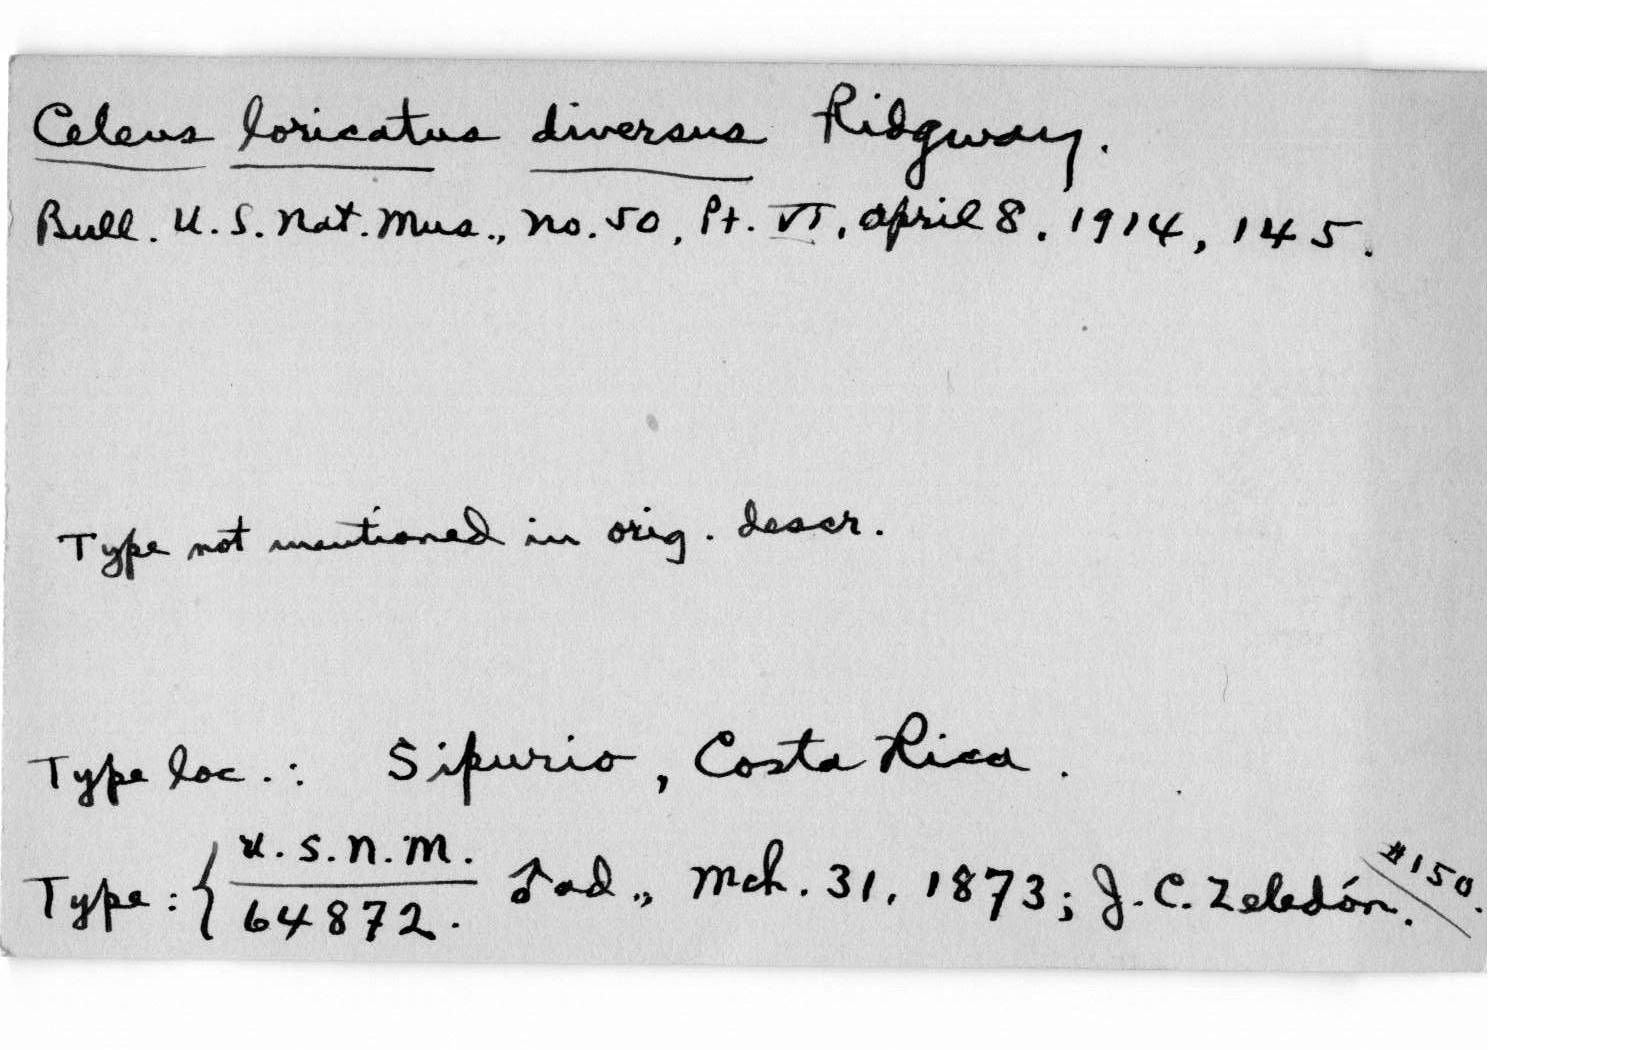 Celeus loricatus diversus Ridgway.
Bull. U.S. Nat. Mus., no. 50, Pt. VI, April 8, 1914, 145.
Type not mentioned in orig. descr.
Type loc.: Sipurio, Costa Rica.
Type: { U.S.N.M.
64872. ♂ ad., Mch. 31, 1873; J.C. Zeledón. #150.